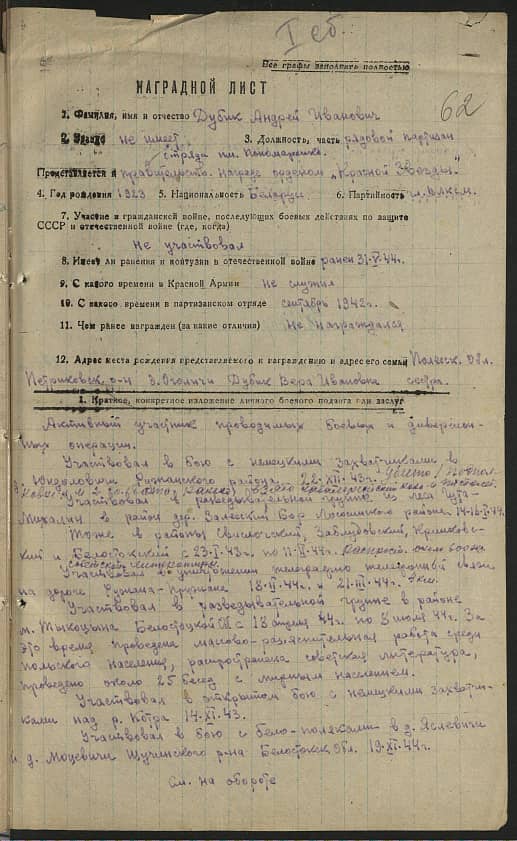 I еб.
Все графы заполнять полностью
62
НАГРАДНОЙ ЛИСТ
1. Фамилия, имя и отчество Дубик Андрей Иванович
2. Звание не имеет 3. Должность, часть рядовой партизан
отряда им. Пономаренко.
Представляется к правительств. награде орденом „Красной Звезды"
4. Год рождения 1923 5. Национальность Беларус 6. Партийность чл. ВЛКСМ.
7. Участие в гражданской войне, последующих боевых действиях по защите
СССР и отечественной войне (где, когда)
Не участвовал
8. Имеет ли ранения и контузии в отечественной войне ранен 31-V-44г.
9. С какого времени в Красной Армии не служил
10. С какого времени в партизанском отряде сентябрь 1942г.
11. Чем ранее награжден (за какие отличия) Не награждался
12. Адрес места рождения представляемого к награждению и адрес его семьи Полесск. обл.
Петриковск. р-н д. Оголичи Дубик Вера Ивановна сестра.
1. Краткое, конкретное изложение личного боевого подвига или заслуг
Активный участник проводимых боевых и диверсион-
ных операции.
Участвовал в бою с немецкими захватчиками в
Ружанского района 22-XII-43г. убито
Участвовал в разведывательной группе из леса
Михалин в район дер. Залесский Бор района 14-16-
Тоже в районы Свислочский, Заблудовский, Крынковс-
кий и Белостокский с 23-I-43г. по 11-II-44г.
советской литературы.
Участвовал в уничтожении телеграфно телефонной связи
на дороге Ружана-Пружане 18-II-44г. и 21-III-44г.
Участвовал в разведывательной группе в районе
м. Тыкоцына Белостоцкой обл с 13 апреля 44г по 3 июля 44г. За
это время проведена массово-разъяснительная работа среди
польского населения, распространена советская литература,
проведено около 25 бесед с мирным населением.
Участвовал в открытом бою с немецкими захватчи-
ками над р. Котра 14-XI-43.
Участвовал в бою с бело-поляками в д. Яслевичи
и д. Моцевичи Щучинского р-на Белостокск обл. 19-XI-44г.
См. на обороте